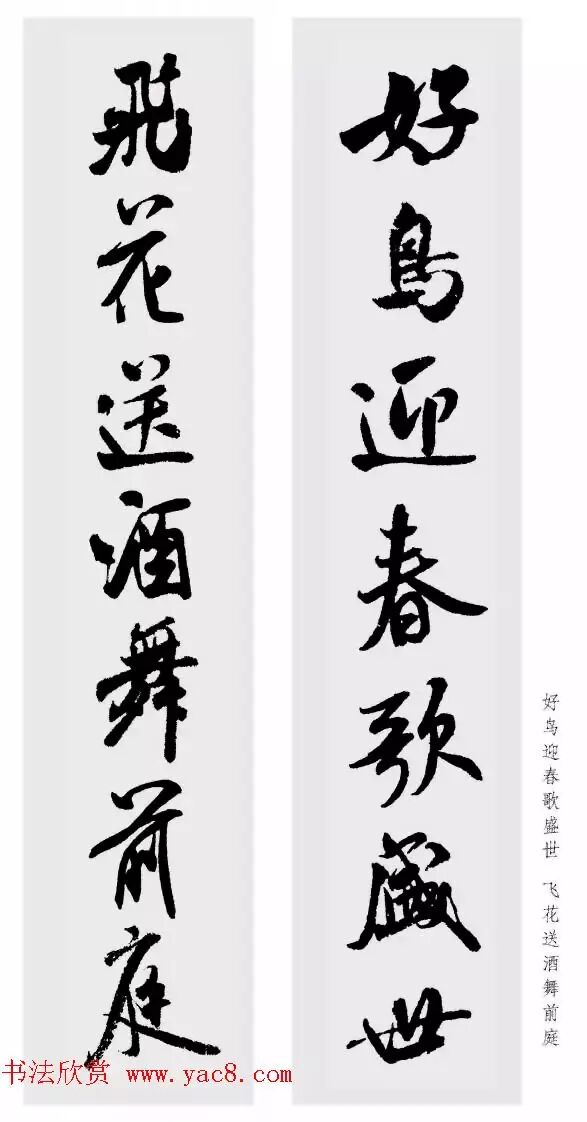 好鳥迎春歌盛世
飛花送酒舞前庭
好鸟迎春歌盛世 飞花送酒舞前庭
书法欣赏 www.yac8.com